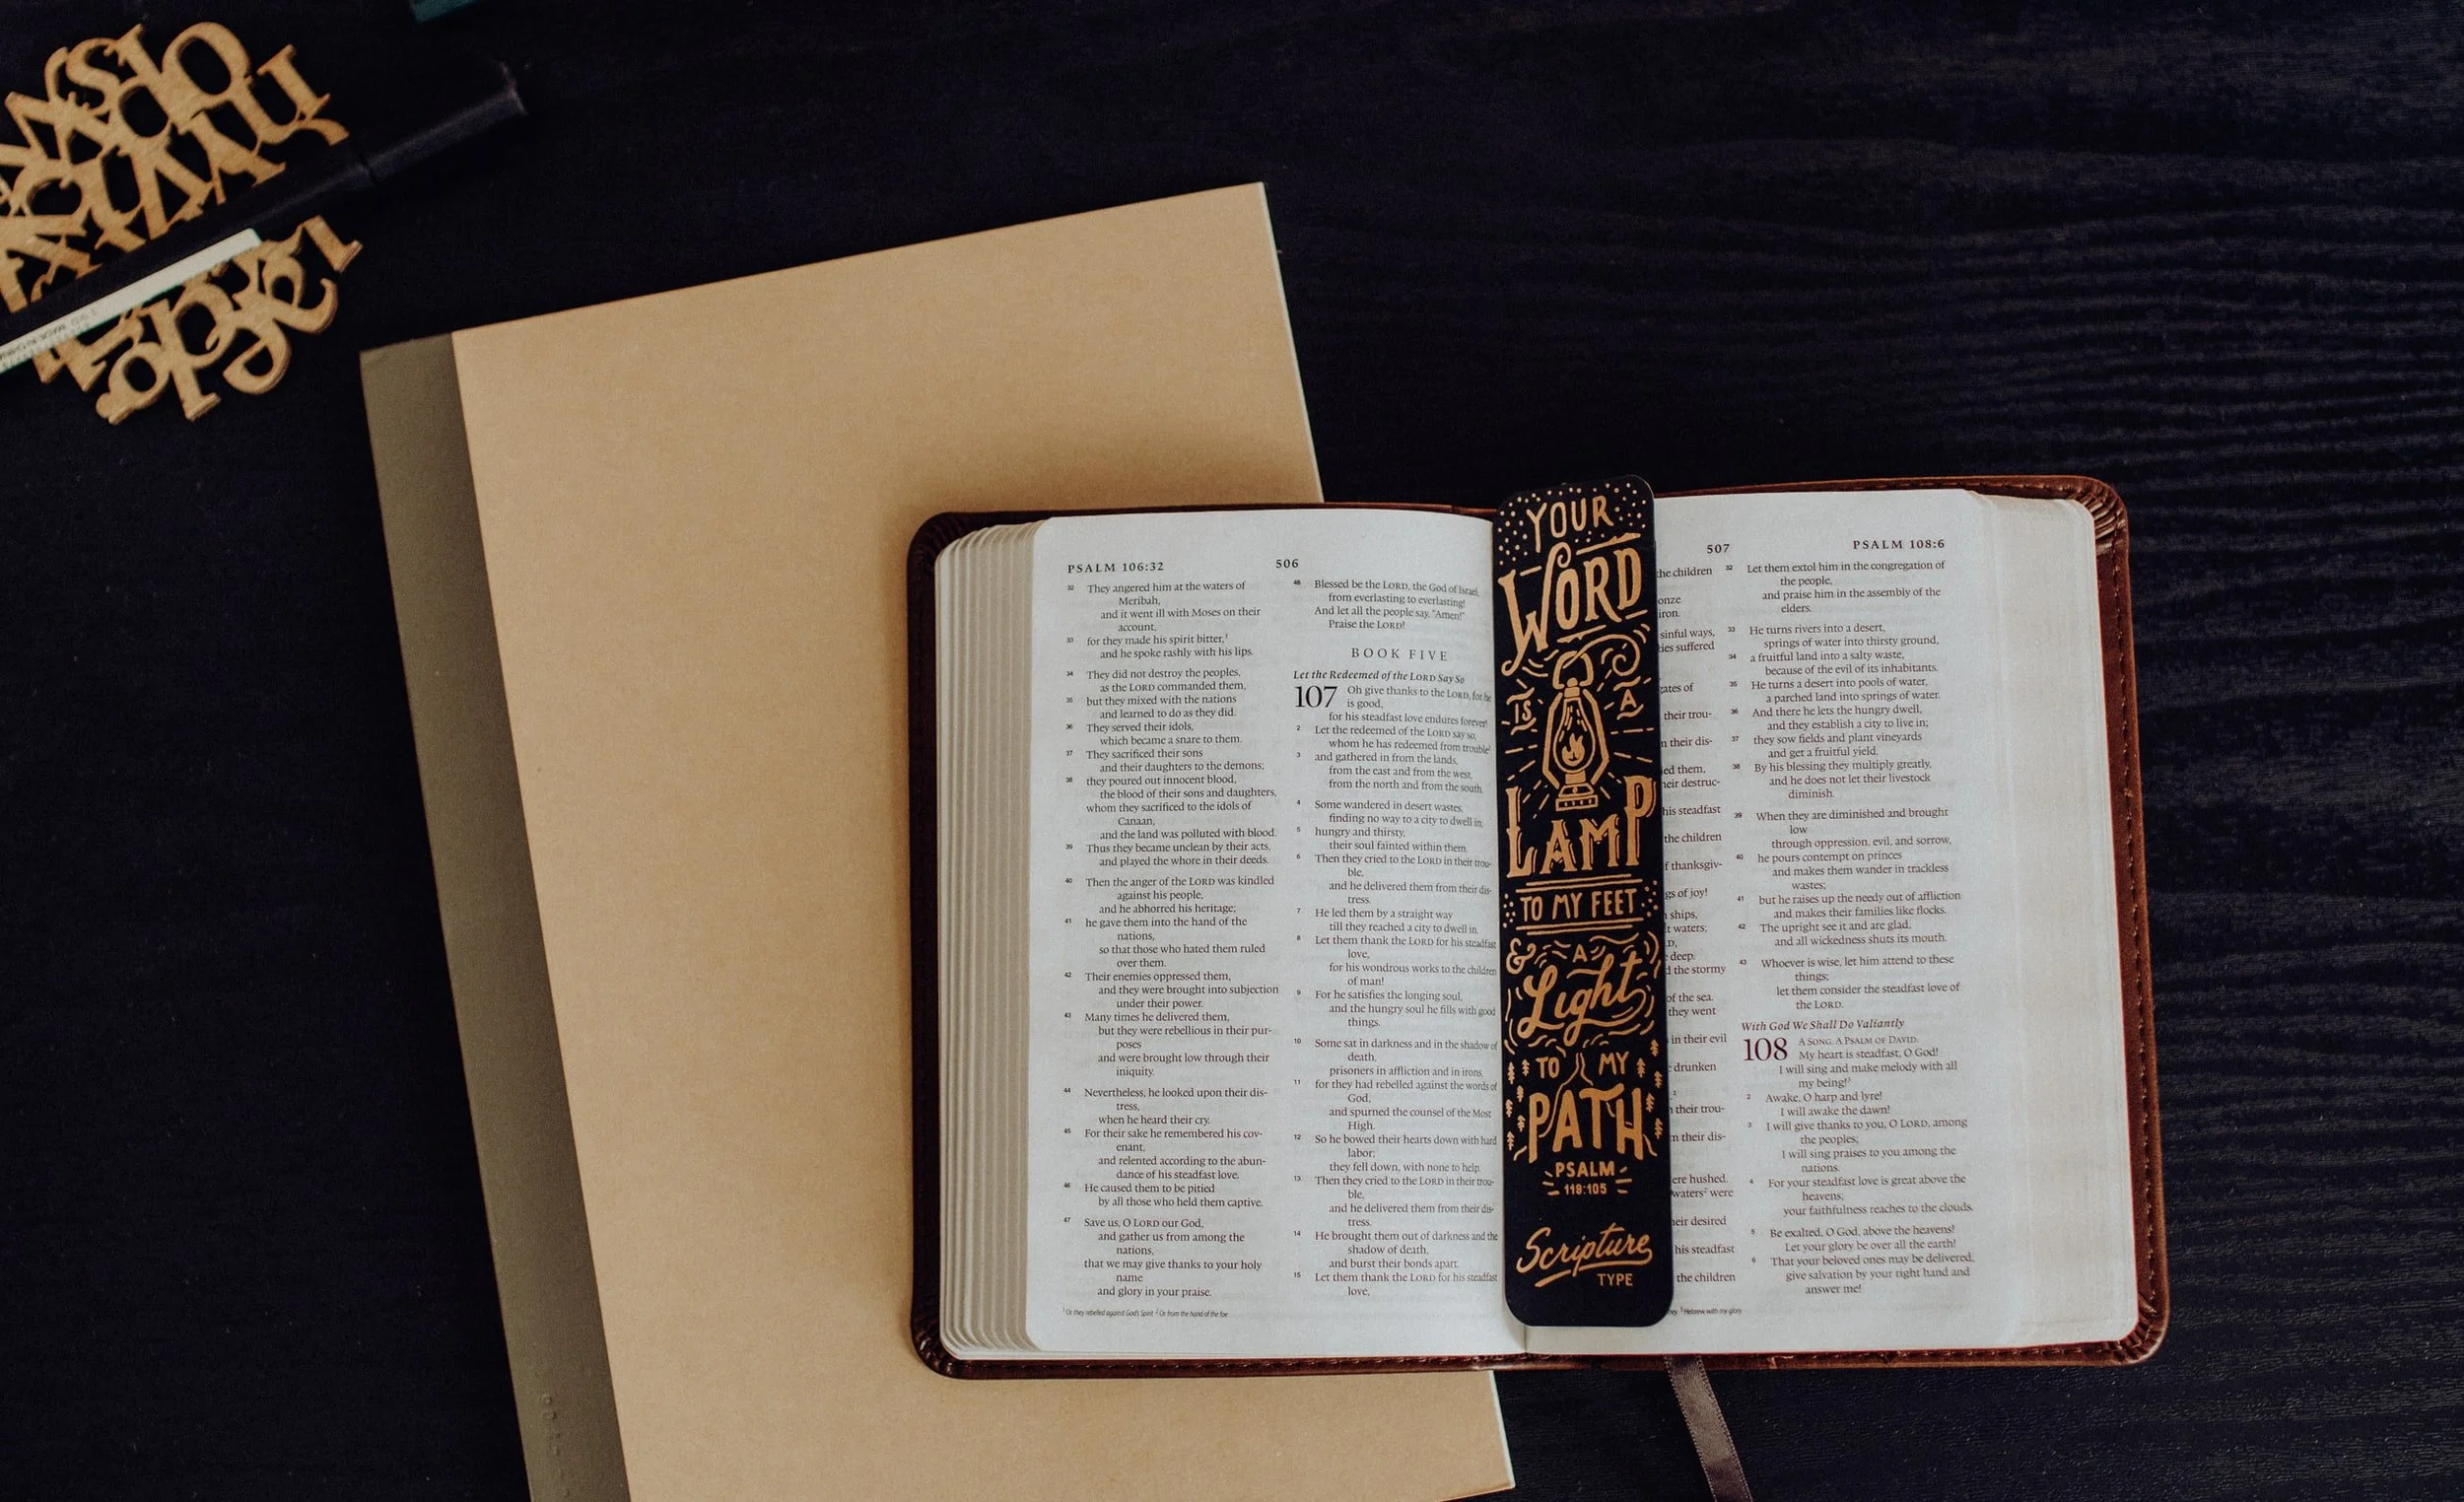 PSALM 106:32
506
32 They angered him at the waters of
Meribah,
and it went ill with Moses on their
account,
33 for they made his spirit bitter,1
and he spoke rashly with his lips.
34 They did not destroy the peoples,
as the LORD commanded them,
35 but they mixed with the nations
and learned to do as they did.
36 They served their idols,
which became a snare to them.
37 They sacrificed their sons
and their daughters to the demons;
38 they poured out innocent blood,
the blood of their sons and daughters,
whom they sacrificed to the idols of
Canaan,
and the land was polluted with blood.
39 Thus they became unclean by their acts,
and played the whore in their deeds.
40 Then the anger of the LORD was kindled
against his people,
and he abhorred his heritage;
41 he gave them into the hand of the
nations,
so that those who hated them ruled
over them.
42 Their enemies oppressed them,
and they were brought into subjection
under their power.
43 Many times he delivered them,
but they were rebellious in their pur-
poses
and were brought low through their
iniquity.
44 Nevertheless, he looked upon their dis-
tress,
when he heard their cry.
45 For their sake he remembered his cov-
enant,
and relented according to the abun-
dance of his steadfast love.
46 He caused them to be pitied
by all those who held them captive.
47 Save us, O LORD our God,
and gather us from among the
nations,
that we may give thanks to your holy
name
and glory in your praise.
1 Or they rebelled against God's Spirit 2 Or from the hand of the foe
48 Blessed be the LORD, the God of Israel,
from everlasting to everlasting!
And let all the people say, "Amen!"
Praise the LORD!
BOOK FIVE
Let the Redeemed of the LORD Say So
107 Oh give thanks to the LORD, for he
is good,
for his steadfast love endures forever!
2 Let the redeemed of the LORD say so,
whom he has redeemed from trouble
3 and gathered in from the lands,
from the east and from the west,
from the north and from the south.
4 Some wandered in desert wastes,
finding no way to a city to dwell in;
5 hungry and thirsty,
their soul fainted within them.
6 Then they cried to the LORD in their trou-
ble,
and he delivered them from their dis-
tress.
7 He led them by a straight way
till they reached a city to dwell in.
8 Let them thank the LORD for his steadfast
love,
for his wondrous works to the children
of man!
9 For he satisfies the longing soul,
and the hungry soul he fills with good
things.
10 Some sat in darkness and in the shadow of
death,
prisoners in affliction and in irons,
11 for they had rebelled against the words of
God,
and spurned the counsel of the Most
High.
12 So he bowed their hearts down with hard
labor;
they fell down, with none to help.
13 Then they cried to the LORD in their trou-
ble,
and he delivered them from their dis-
tress.
14 He brought them out of darkness and the
shadow of death,
and burst their bonds apart.
15 Let them thank the LORD for his steadfast
love,
YOUR
WORD
IS A
LAMP
TO MY FEET
& A
Light
TO MY
PATH
PSALM
119:105
Scripture
TYPE
507
PSALM 108:6
the children
onze
iron.
sinful ways,
ies suffered
gates of
their trou-
n their dis-
ed them,
heir destruc-
his steadfast
the children
f thanksgiv-
gs of joy!
ships,
t waters;
D,
deep.
d the stormy
of the sea.
they went
in their evil
drunken
their trou-
m their dis-
ere hushed.
waters2 were
heir desired
his steadfast
the children
3 Hebrew with my glory
32 Let them extol him in the congregation of
the people,
and praise him in the assembly of the
elders.
33 He turns rivers into a desert,
springs of water into thirsty ground,
34 a fruitful land into a salty waste,
because of the evil of its inhabitants.
35 He turns a desert into pools of water,
a parched land into springs of water.
36 And there he lets the hungry dwell,
and they establish a city to live in;
37 they sow fields and plant vineyards
and get a fruitful yield.
38 By his blessing they multiply greatly,
and he does not let their livestock
diminish.
39 When they are diminished and brought
low
through oppression, evil, and sorrow,
40 he pours contempt on princes
and makes them wander in trackless
wastes;
41 but he raises up the needy out of affliction
and makes their families like flocks.
42 The upright see it and are glad,
and all wickedness shuts its mouth.
43 Whoever is wise, let him attend to these
things;
let them consider the steadfast love of
the LORD.
With God We Shall Do Valiantly
108 A SONG. A PSALM OF DAVID.
My heart is steadfast, O God!
I will sing and make melody with all
my being!3
2 Awake, O harp and lyre!
I will awake the dawn!
3 I will give thanks to you, O LORD, among
the peoples;
I will sing praises to you among the
nations.
4 For your steadfast love is great above the
heavens;
your faithfulness reaches to the clouds.
5 Be exalted, O God, above the heavens!
Let your glory be over all the earth!
6 That your beloved ones may be delivered,
give salvation by your right hand and
answer me!